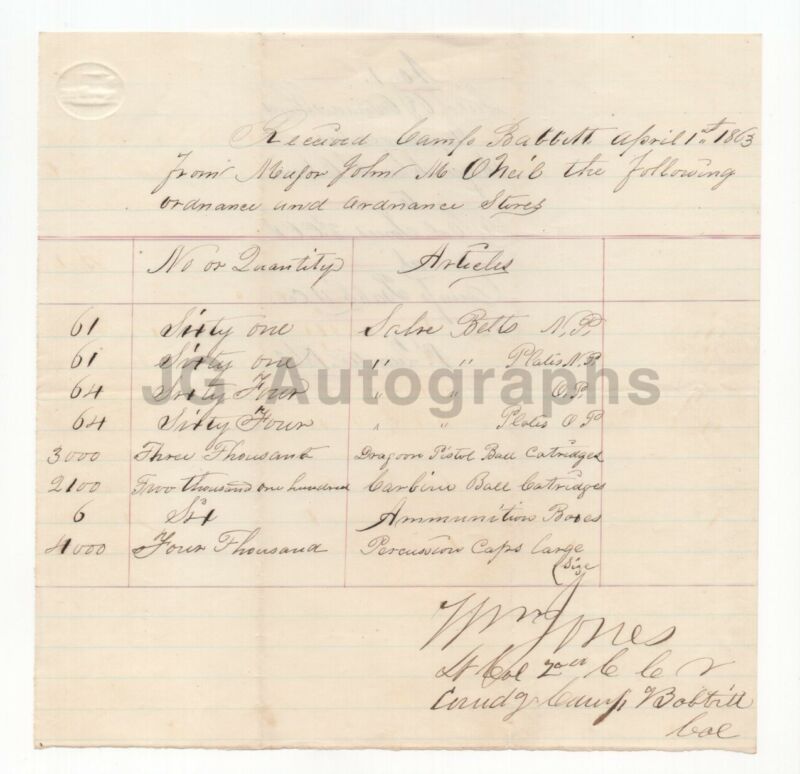 Received Camp Babbitt April 1st 1863
from Major John M. O'Neil the following
ordnance and ordnance Stores
No or Quantity Articles
61 Sixty one Sabre Belts N.P.
61 Sixty one " " Plates N.P.
64 Sixty Four " " O.P.
64 Sixty Four " " Plates O P
3000 Three Thousand Dragoon Pistol Ball Catridges
2100 Two thousand one hundred Carbine Ball Catridges
6 Six Ammunition Boxes
4000 Four Thousand Percussion Caps large
(size
Wm Jones
Lt Col 2nd C C V
Comdg Camp Babbitt
Cal
JG Autographs